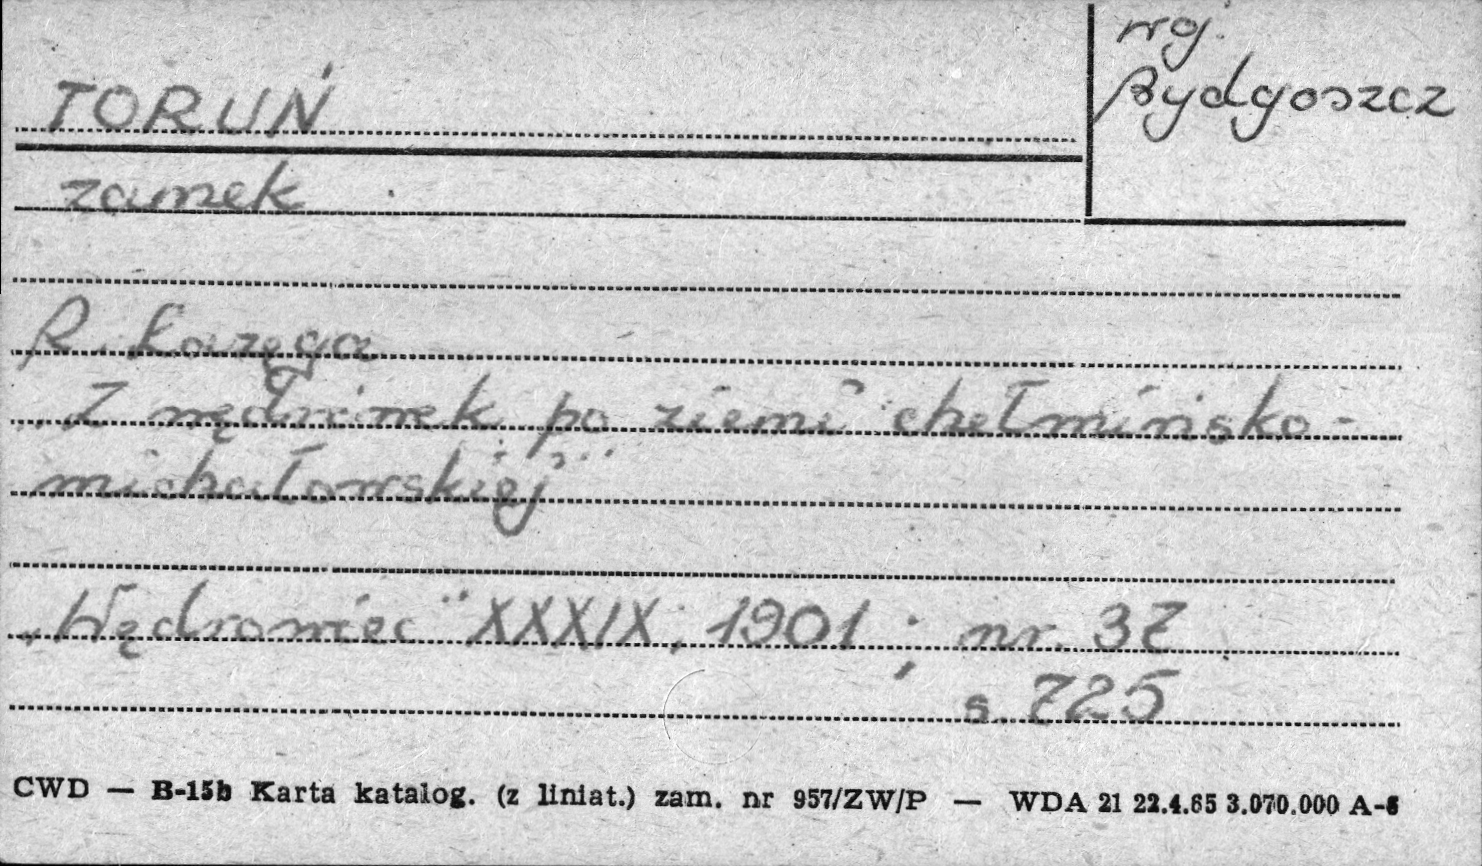 woj.
Bydgoszcz
TORUŃ
zamek
R. Łazęga
„Z wędrówek po ziemi chełmińsko-
michałowskiej"
„Wędrowiec" XXXIX, 1901; nr. 37
s. 725
CWD — B-15b Karta katalog. (z liniat.) zam. nr 957/ZW/P — WDA 21 22.4.65 3.070.000 A-6